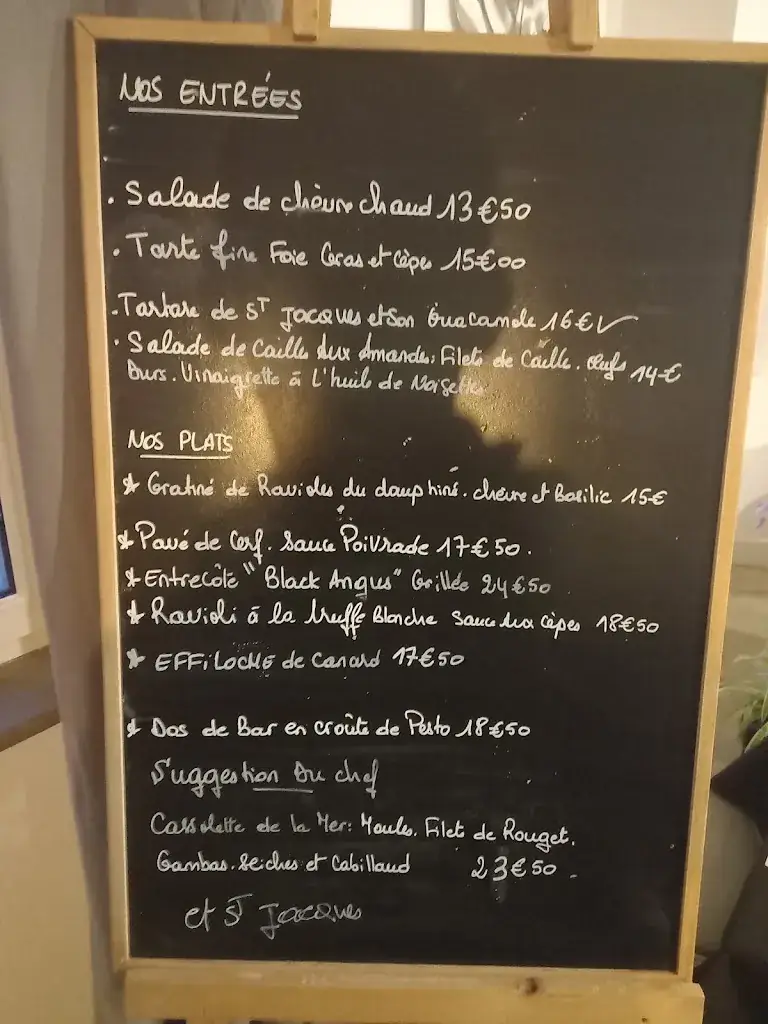 NOS ENTRÉES
. Salade de chèvre chaud 13€50
. Tarte fine Foie Gras et Cèpes 15€00
. Tartare de ST JACQUES et son Guacamole 16€
. Salade de Caille Aux Amandes, Filets de Caille. Œufs 14€
Durs. Vinaigrette à L'huile de Noisette
NOS PLATS
* Gratiné de Ravioles du dauphiné. chèvre et Basilic 15€
* Pavé de Cerf. Sauce Poivrade 17€50.
* Entrecôte "Black Angus" Grillée 24€50
* Ravioli à la truffe Blanche Sauce Aux cèpes 18€50
* EFFILOCHÉ de Canard 17€50
* Dos de Bar en croûte de Pesto 18€50
Suggestion Du chef
Cassolette de la Mer: Moules. Filet de Rouget.
Gambas. Seiches et Cabillaud 23€50.
et ST JACQUES